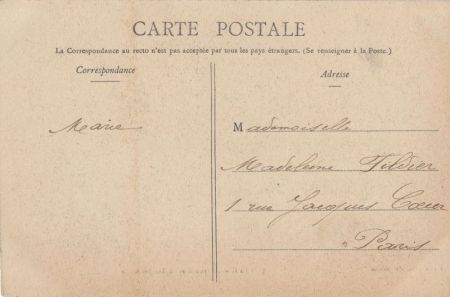 CARTE POSTALE
La Correspondance au recto n'est pas acceptée par tous les pays étrangers. (Se renseigner à la Poste.)
Correspondance
Adresse
Marie
Mademoiselle
Madeleine Tildier
1 rue Jacques Cœur
Paris